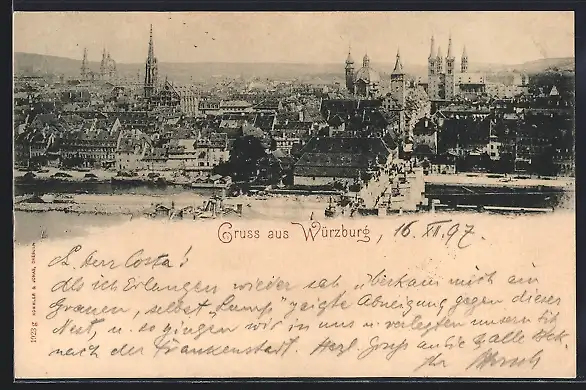 Gruss aus Würzburg, 16. XII. 97.
L. Herr Costa!
Als ich Erlangen wieder sah überkam mich ein
Grauen, selbst „Lump" zeigte Abneigung gegen dieses
Nest, u. so gingen wir in uns u. verlegten unsern
nach der Frankenstadt. Herzl. Gruß an die
Ihr
1023 g RÖMMLER & JONAS, DRESDEN